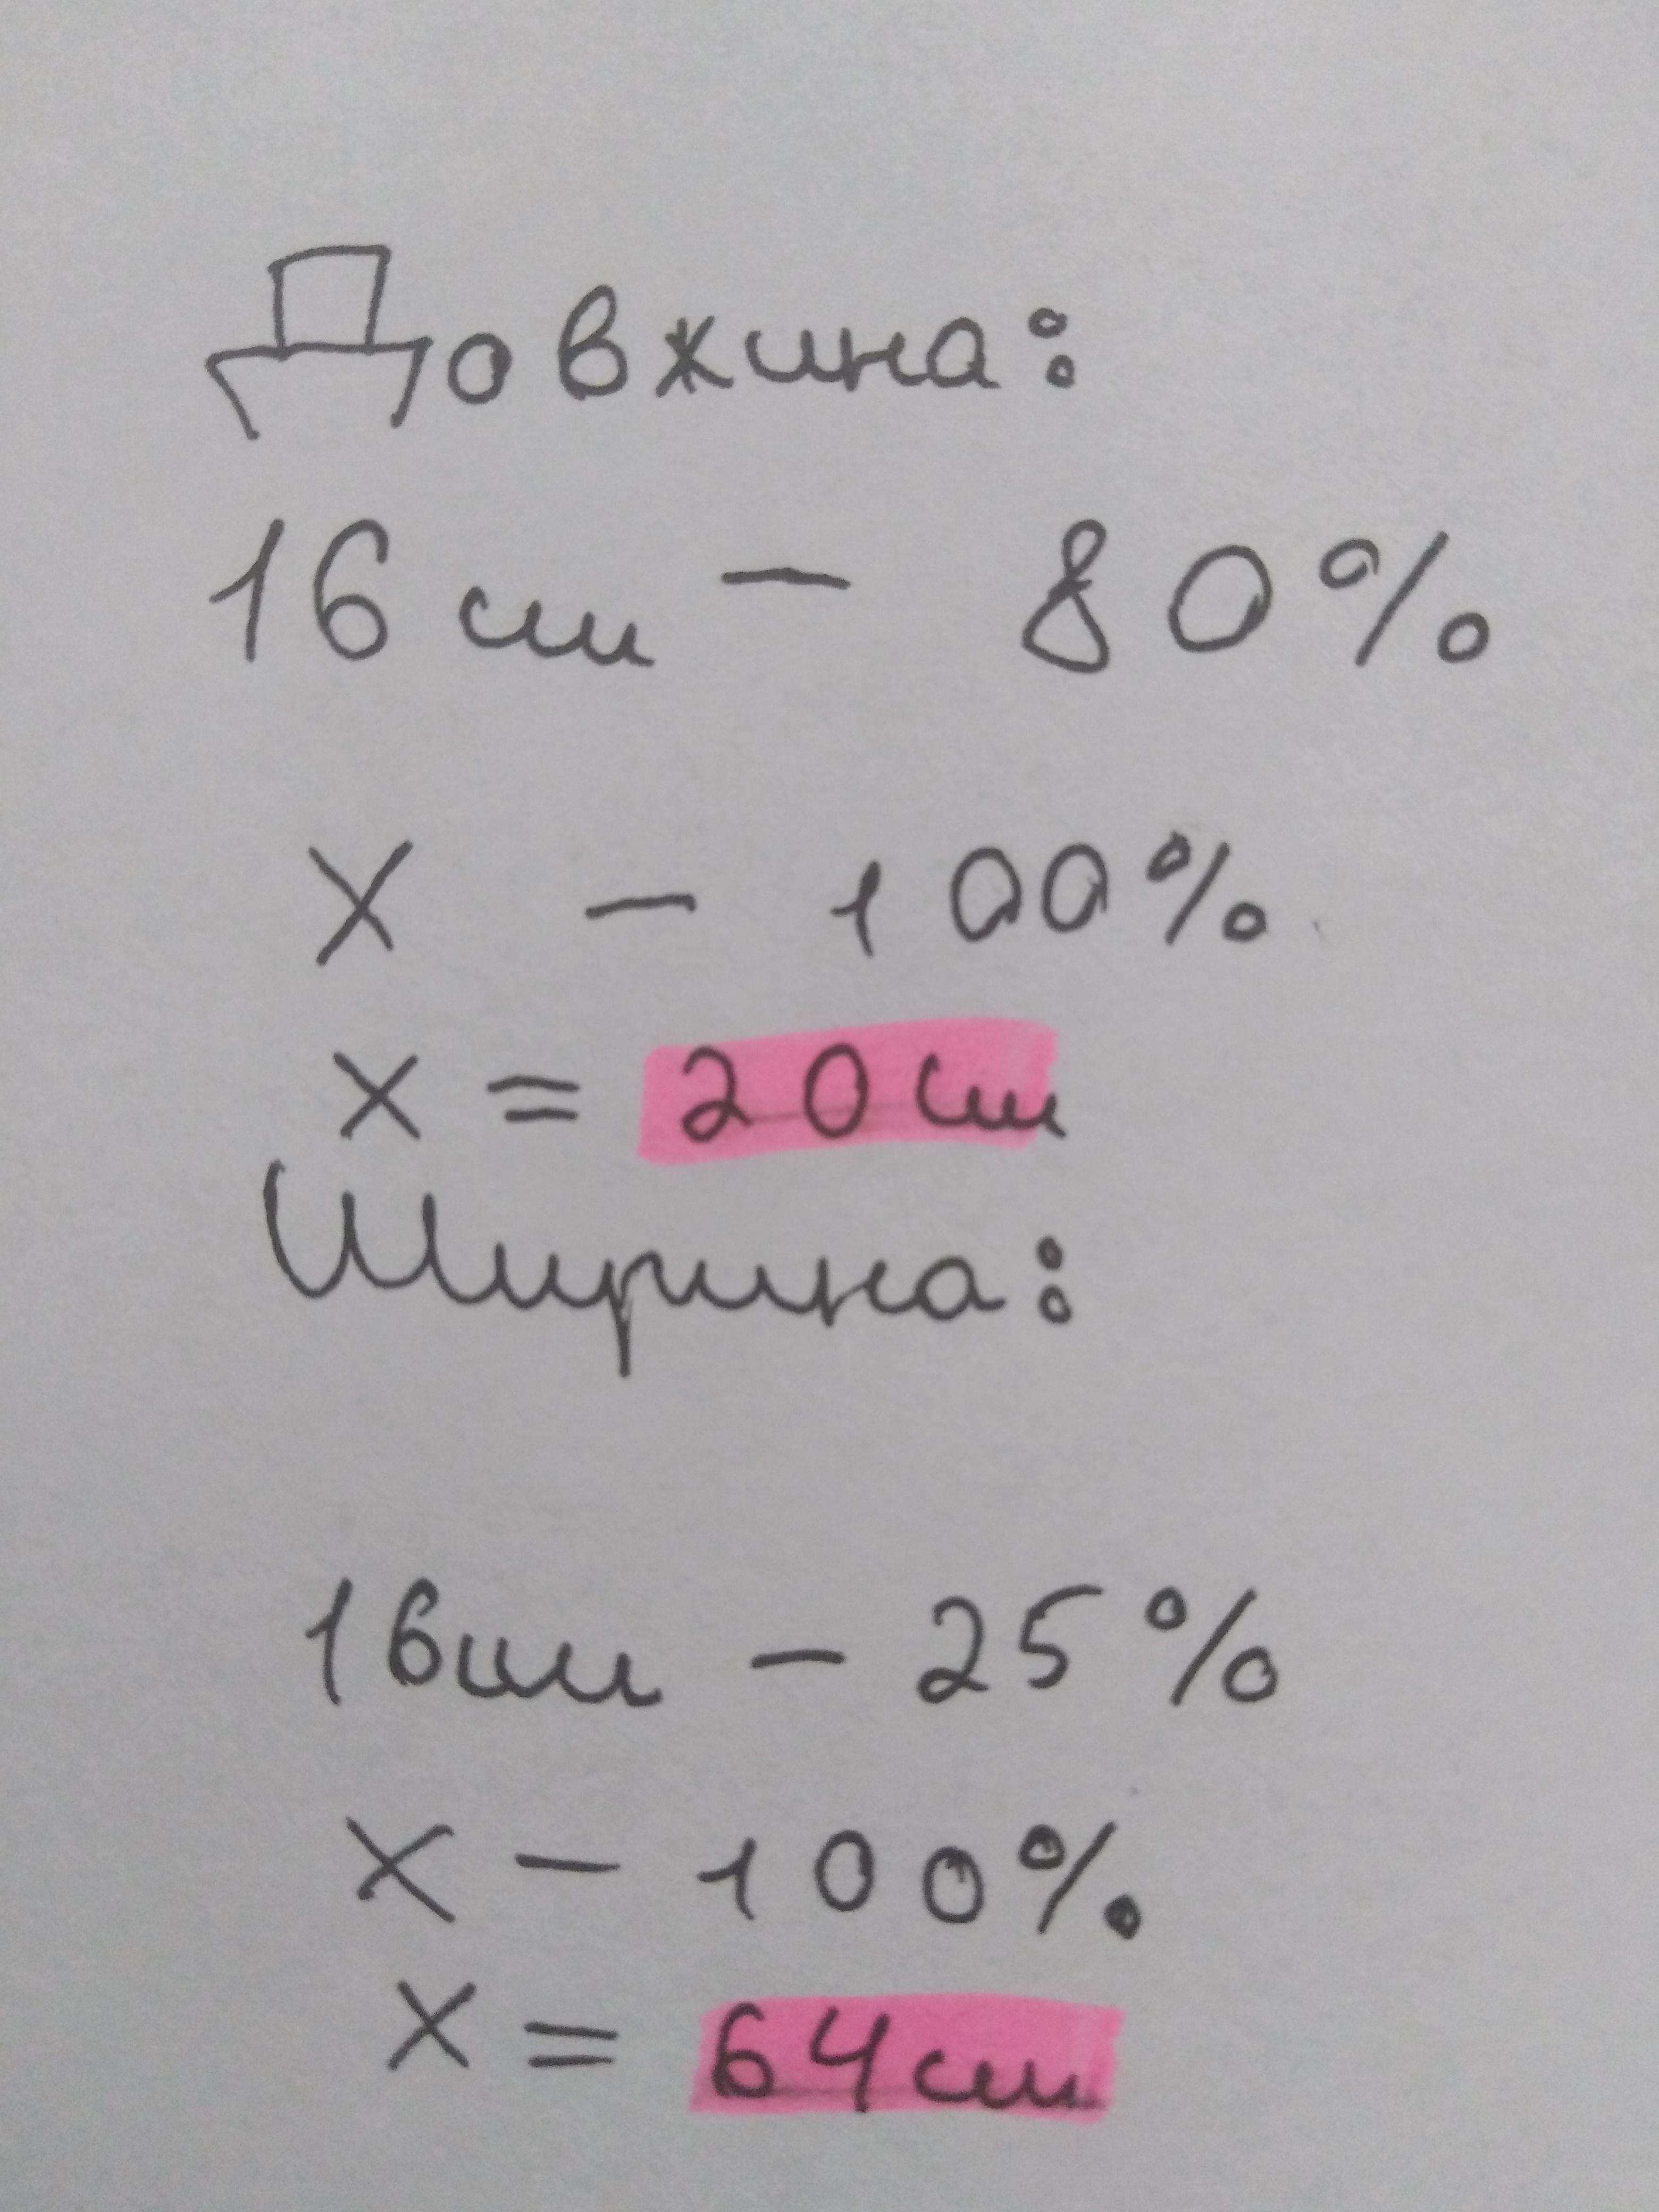 Довжина:
16 см - 80%
х - 100%
х = 20 см
Ширина:
16см - 25%
х - 100%
х = 64 см